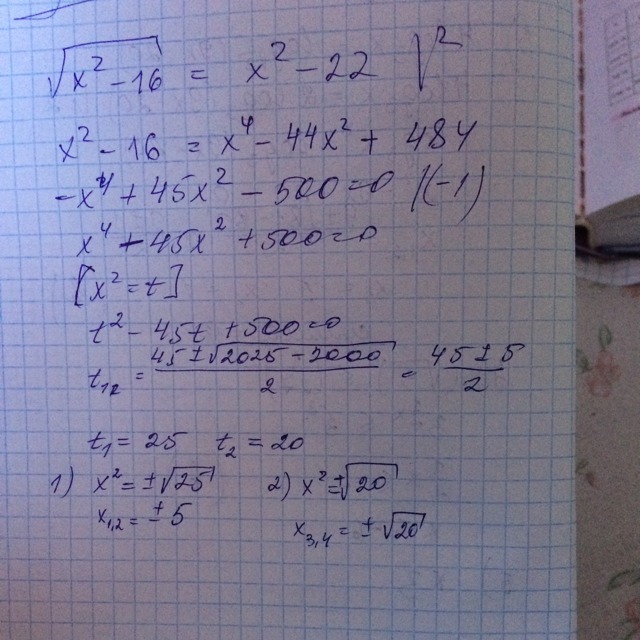 √(x² - 16) = x² - 22 |²
x² - 16 = x⁴ - 44x² + 484
-x⁴ + 45x² - 500 = 0 /(-1)
x⁴ - 45x² + 500 = 0
[x² = t]
t² - 45t + 500 = 0
t₁₂ = (45 ± √(2025 - 2000))/2 = (45 ± 5)/2
t₁ = 25 t₂ = 20
1) x² = ±√25 2) x² = ±√20
x₁,₂ = ± 5 x₃,₄ = ± √20